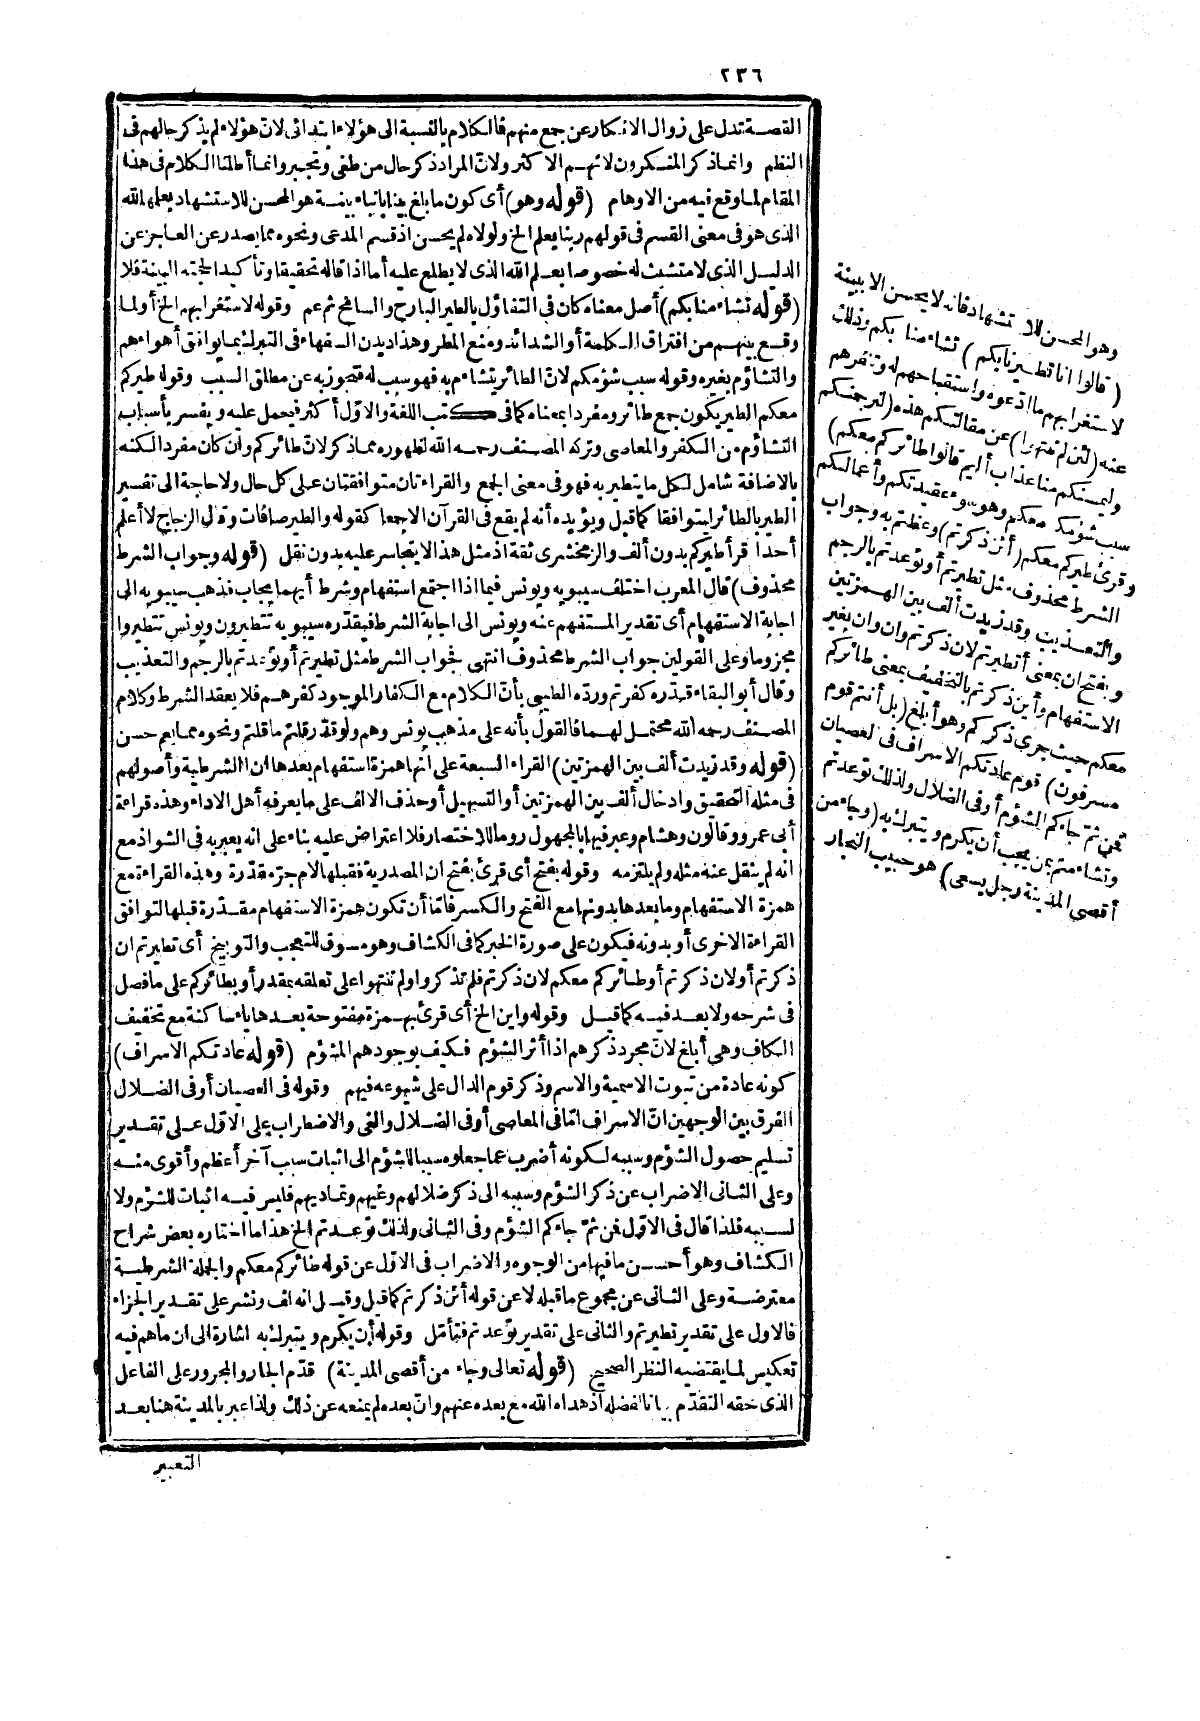 ٢٣٦
القصة تدل على زوال الانكار عن جمع منهم فالكلام بالنسبة الى هؤلاء ابتدائى لانّ هؤلاء لم يذكر حالهم فى
النظم وانما ذكر المنكرون لانهم الاكثر ولانّ المراد ذكر حال من طغى وتجبر وانما أطلنا الكلام فى هذا
المقام لما وقع فيه من الاوهام (قوله وهو) أى كون ما بلغ بيناباتباء بينة هو المحسن للاستشهاد بعلم الله
الذى هو فى معنى القسم فى قولهم ربنا يعلم الخ ولولاه لم يحسن اذ قسم المدعى ونحوه مما يصدر عن العاجز عن
الدليل الذى لا متشبث له خصوصا بعلم الله الذى لا يطلع عليه أما اذا قاله تحقيقا وتأكيد الحجته البينة فلا
(قوله تشاءمنا بكم) أصل معناه كان فى التفاؤل بالطير البارح والسانح ثم عم وقوله لاستغرابهم الخ أو لما
وقع بينهم من افتراق الكلمة أو الشدائد ومنع المطر وهذا ديدن السفهاء فى التبرك بما يوافق أهواءهم
والتشاؤم بغيره وقوله سبب شؤمكم لانّ الطائر يتشاءم به فهو سبب له فتجوز به عن مطلق السبب وقوله طيركم
معكم الطير يكون جمع طائر ومفردا بمعناه كما فى كتب اللغة والاوّل أكثر فيحمل عليه ويفسر بأسباب
التشاؤم من الكفر والمعاصى وتركه المصنف رحمه الله لظهوره مما ذكر لانّ طائركم وان كان مفردا لكنه
بالاضافة شامل لكل ما يتطير به فهو فى معنى الجمع والقراءتان متوافقتان على كل حال ولا حاجة الى تفسير
الطير بالطائر ليتوافقا كما قيل ويؤيده أنه لم يقع فى القرآن الا جمعا كقوله والطير صافات وقال الزجاج لا أعلم
أحدا قرأ طيركم بدون ألف والزمخشرى ثقة اذ مثل هذا لا يتجاسر عليه بدون نقل (قوله وجواب الشرط
محذوف) قال المعرب اختلف سيبويه ويونس فيما اذا اجتمع استفهام وشرط أيهما يجاب فذهب سيبويه الى
اجابة الاستفهام أى تقدير المستفهم عنه ويونس الى اجابة الشرط فيقدره سيبويه تتطيرون ويونس تتطيروا
مجزوما وعلى القولين جواب الشرط محذوف انتهى فجواب الشرط مثل تطيرتم أو توعدتم بالرجم والتعذيب
وقال أبو البقاء قدره كفرتم وردّه الطيبى بأنّ الكلام مع الكفار والموجود كفرهم فلا يعقد الشرط وكلام
المصنف رحمه الله محتمل لهما فالقول بأنه على مذهب يونس وهم ولو قدّر قلتم ما قلتم ونحوه مما يعم حسن
(قوله وقد زيدت ألف بين الهمزتين) القراء السبعة على انها همزة استفهام بعدها ان الشرطية وأصولهم
فى مثله التحقيق وادخال ألف بين الهمزتين أو التسهيل أو حذف الالف على ما يعرفه أهل الاداء وهذه قراءة
أبى عمرو وقالون وهشام وعبر فيها بالمجهول روما للاختصار فلا اعتراض عليه بناء على انه يعبر به فى الشواذ مع
انه لم ينقل عنه مثله ولم يلتزمه وقوله بفتح أى قرئ بفتح ان المصدرية فقبلها لام جرّ مقدّرة وهذه القراءة مع
همزة الاستفهام وما بعدها بدونها مع الفتح والكسر فامّا أن تكون همزة الاستفهام مقدّرة قبلها لتوافق
القراءة الاخرى أو بدونه فيكون على صورة الخبر كما فى الكشاف وهو مسوق للتعجب والتوبيخ أى تطيرتم ان
ذكرتم أو لان ذكرتم أو طائركم معكم لان ذكرتم فلم تذكروا ولم تنتهوا على تعلقه بمقدر أو بطائركم على ما فصل
فى شرحه ولا بعد فيه كما قيل وقوله واين الخ أى قرئ بهمزة مفتوحة بعدها ياء ساكنة مع تخفيف
الكاف وهى أبلغ لانّ مجرد ذكرهم اذا أثر الشؤم فكيف بوجودهم المشؤم (قوله عادتكم الاسراف)
كونه عادة من ثبوت الاسمية والاسم وذكر قوم الدال على شيوعه فيهم وقوله فى العصيان أو فى الضلال
الفرق بين الوجهين انّ الاسراف امّا فى المعاصى أو فى الضلال والغى والاضطراب على الاوّل على تقدير
تسليم حصول الشؤم وسببه لكونه أضرب عما جعلوه سببا للشؤم الى اثبات سبب آخر أعظم وأقوى منه
وعلى الثانى الاضراب عن ذكر الشؤم وسببه الى ذكر ضلالهم وغيهم وتماديهم فليس فيه اثبات للشؤم ولا
لسببه فلذا قال فى الاوّل فمن ثمّ جاءكم الشؤم وفى الثانى ولذلك توعدتم الخ هذا ما اختاره بعض شراح
الكشاف وهو أحسن ما فيها من الوجوه والاضراب فى الاوّل عن قوله طائركم معكم والجملة الشرطية
معترضة وعلى الثانى عن مجموع ما قبله لا عن قوله أئن ذكرتم كما قيل وقيل انه لف ونشر على تقدير الجزاء
فالاول على تقدير تطيرتم والثانى على تقدير توعدتم فتأمّل وقوله أن يكرم ويتبرك به اشارة الى ان ما هم فيه
تعكيس لما يقتضيه النظر الصحيح (قوله تعالى وجاء من أقصى المدينة) قدّم الجار والمجرور على الفاعل
الذى حقه التقدّم بيانا لفضله اذ هداه الله مع بعده عنهم وانّ بعده لم يمنعه عن ذلك ولذا عبر بالمدينة هنا بعد
التعبير
وهو المحسن للاستشهاد فانه لا يحسن الا ببينة
(قالوا انا تطيرنا بكم) تشاءمنا بكم وذلك
لاستغرابهم ما ادّعوه واستقباحهم له وتنفرهم
عنه (لئن لم تنتهوا) عن مقالتكم هذه (لنرجمنكم
وليمسنكم منا عذاب أليم قالوا طائركم معكم)
سبب شؤمكم معكم وهو سوء عقيدتكم وأعمالكم
وقرئ طيركم معكم (أئن ذكرتم) وعظتم به وجواب
الشرط محذوف مثل تطيرتم أو توعدتم بالرجم
والتعذيب وقد زيدت ألف بين الهمزتين
وبفتح ان بمعنى أتطيرتم لان ذكرتم وان وان بغير
الاستفهام وأين ذكرتم بالتخفيف بمعنى طائركم
معكم حيث جرى ذكركم وهو أبلغ (بل أنتم قوم
مسرفون) قوم عادتكم الاسراف فى العصيان
فمن ثمّ جاءكم الشؤم أو فى الضلال ولذلك توعدتم
وتشاءمتم بمن يجب أن يكرم ويتبرك به (وجاء من
أقصى المدينة رجل يسعى) هو حبيب النجار